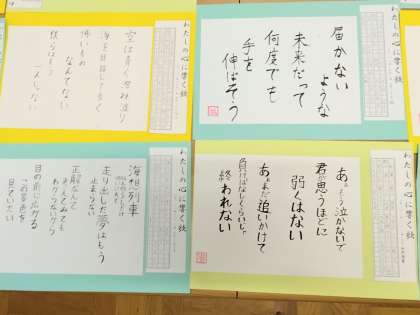 わたしの心に響く歌
空は青く澄み渡り
海を目指して歩く
怖いもの
なんてない
僕らはもう
一人じゃない
わたしの心に響く歌
届かない
ような
未来だって
何度でも
手を
伸ばそう
わたしの心に響く歌
海想列車
走り出した夢はもう
止まらない
正解なんて
考えてみても
わからないから
目の前に広がる
この景色を
見ていたい
わたしの心に響く歌
あぁもう泣かないで
君が思うほどに
弱くはない
あぁまだ追いかけて
負けっぱなしくらいじゃ
終われない